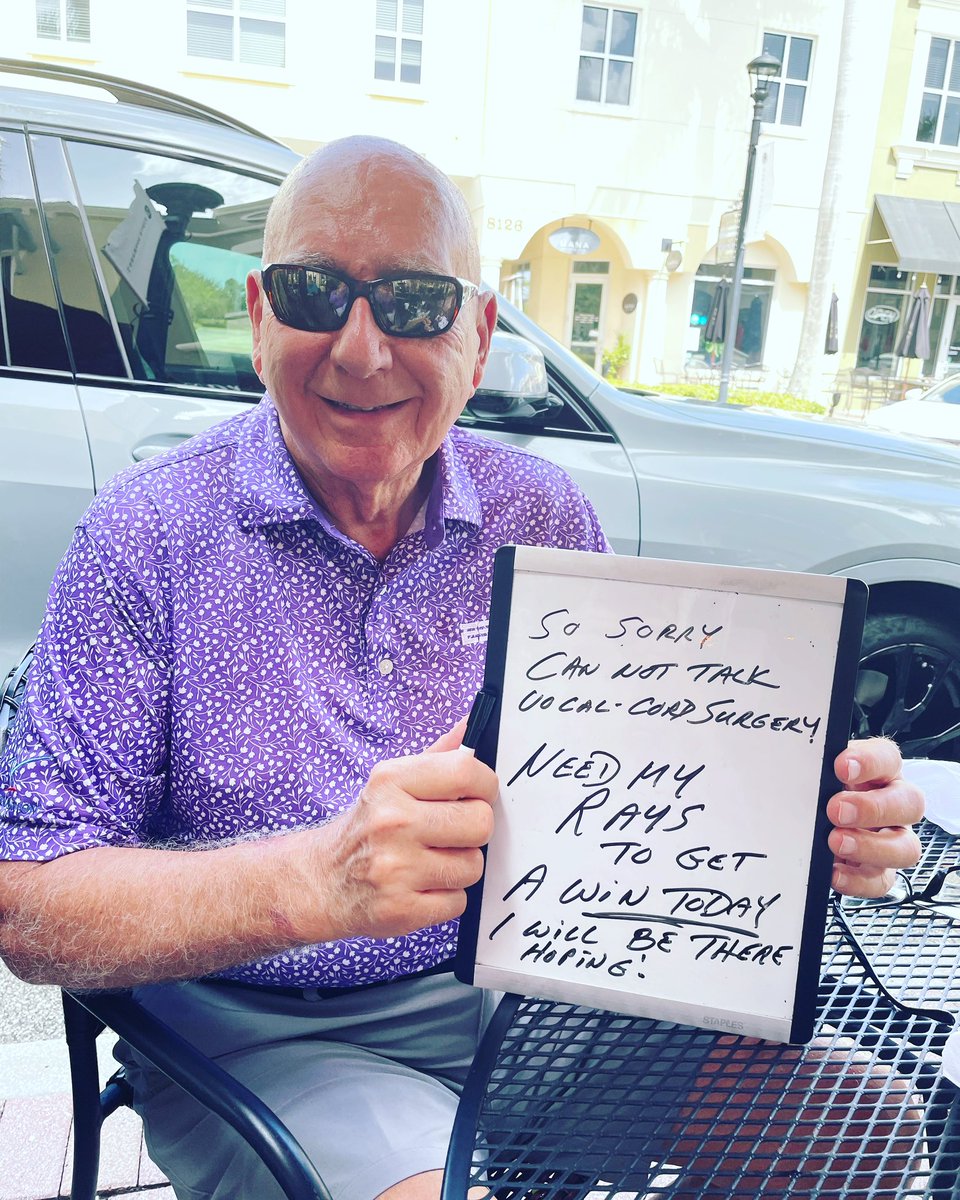 6126
SO SORRY
CAN NOT TALK
VOCAL-CORD SURGERY!
NEED MY
RAYS
TO GET
A WIN TODAY
I WILL BE THERE
HOPING!
STAPLES